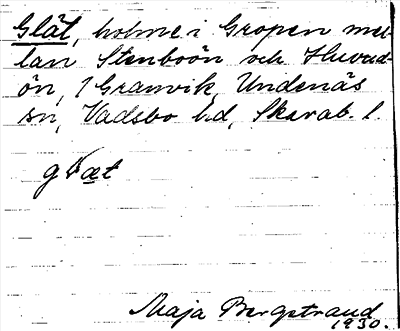 Glät, holme i Gropen mel-
lan Stenboön och Huvud-
ön, 1 Granvik, Undenäs
sn, Vadsbo hd, Skarab. l.
Maja Bergstrand
1930.